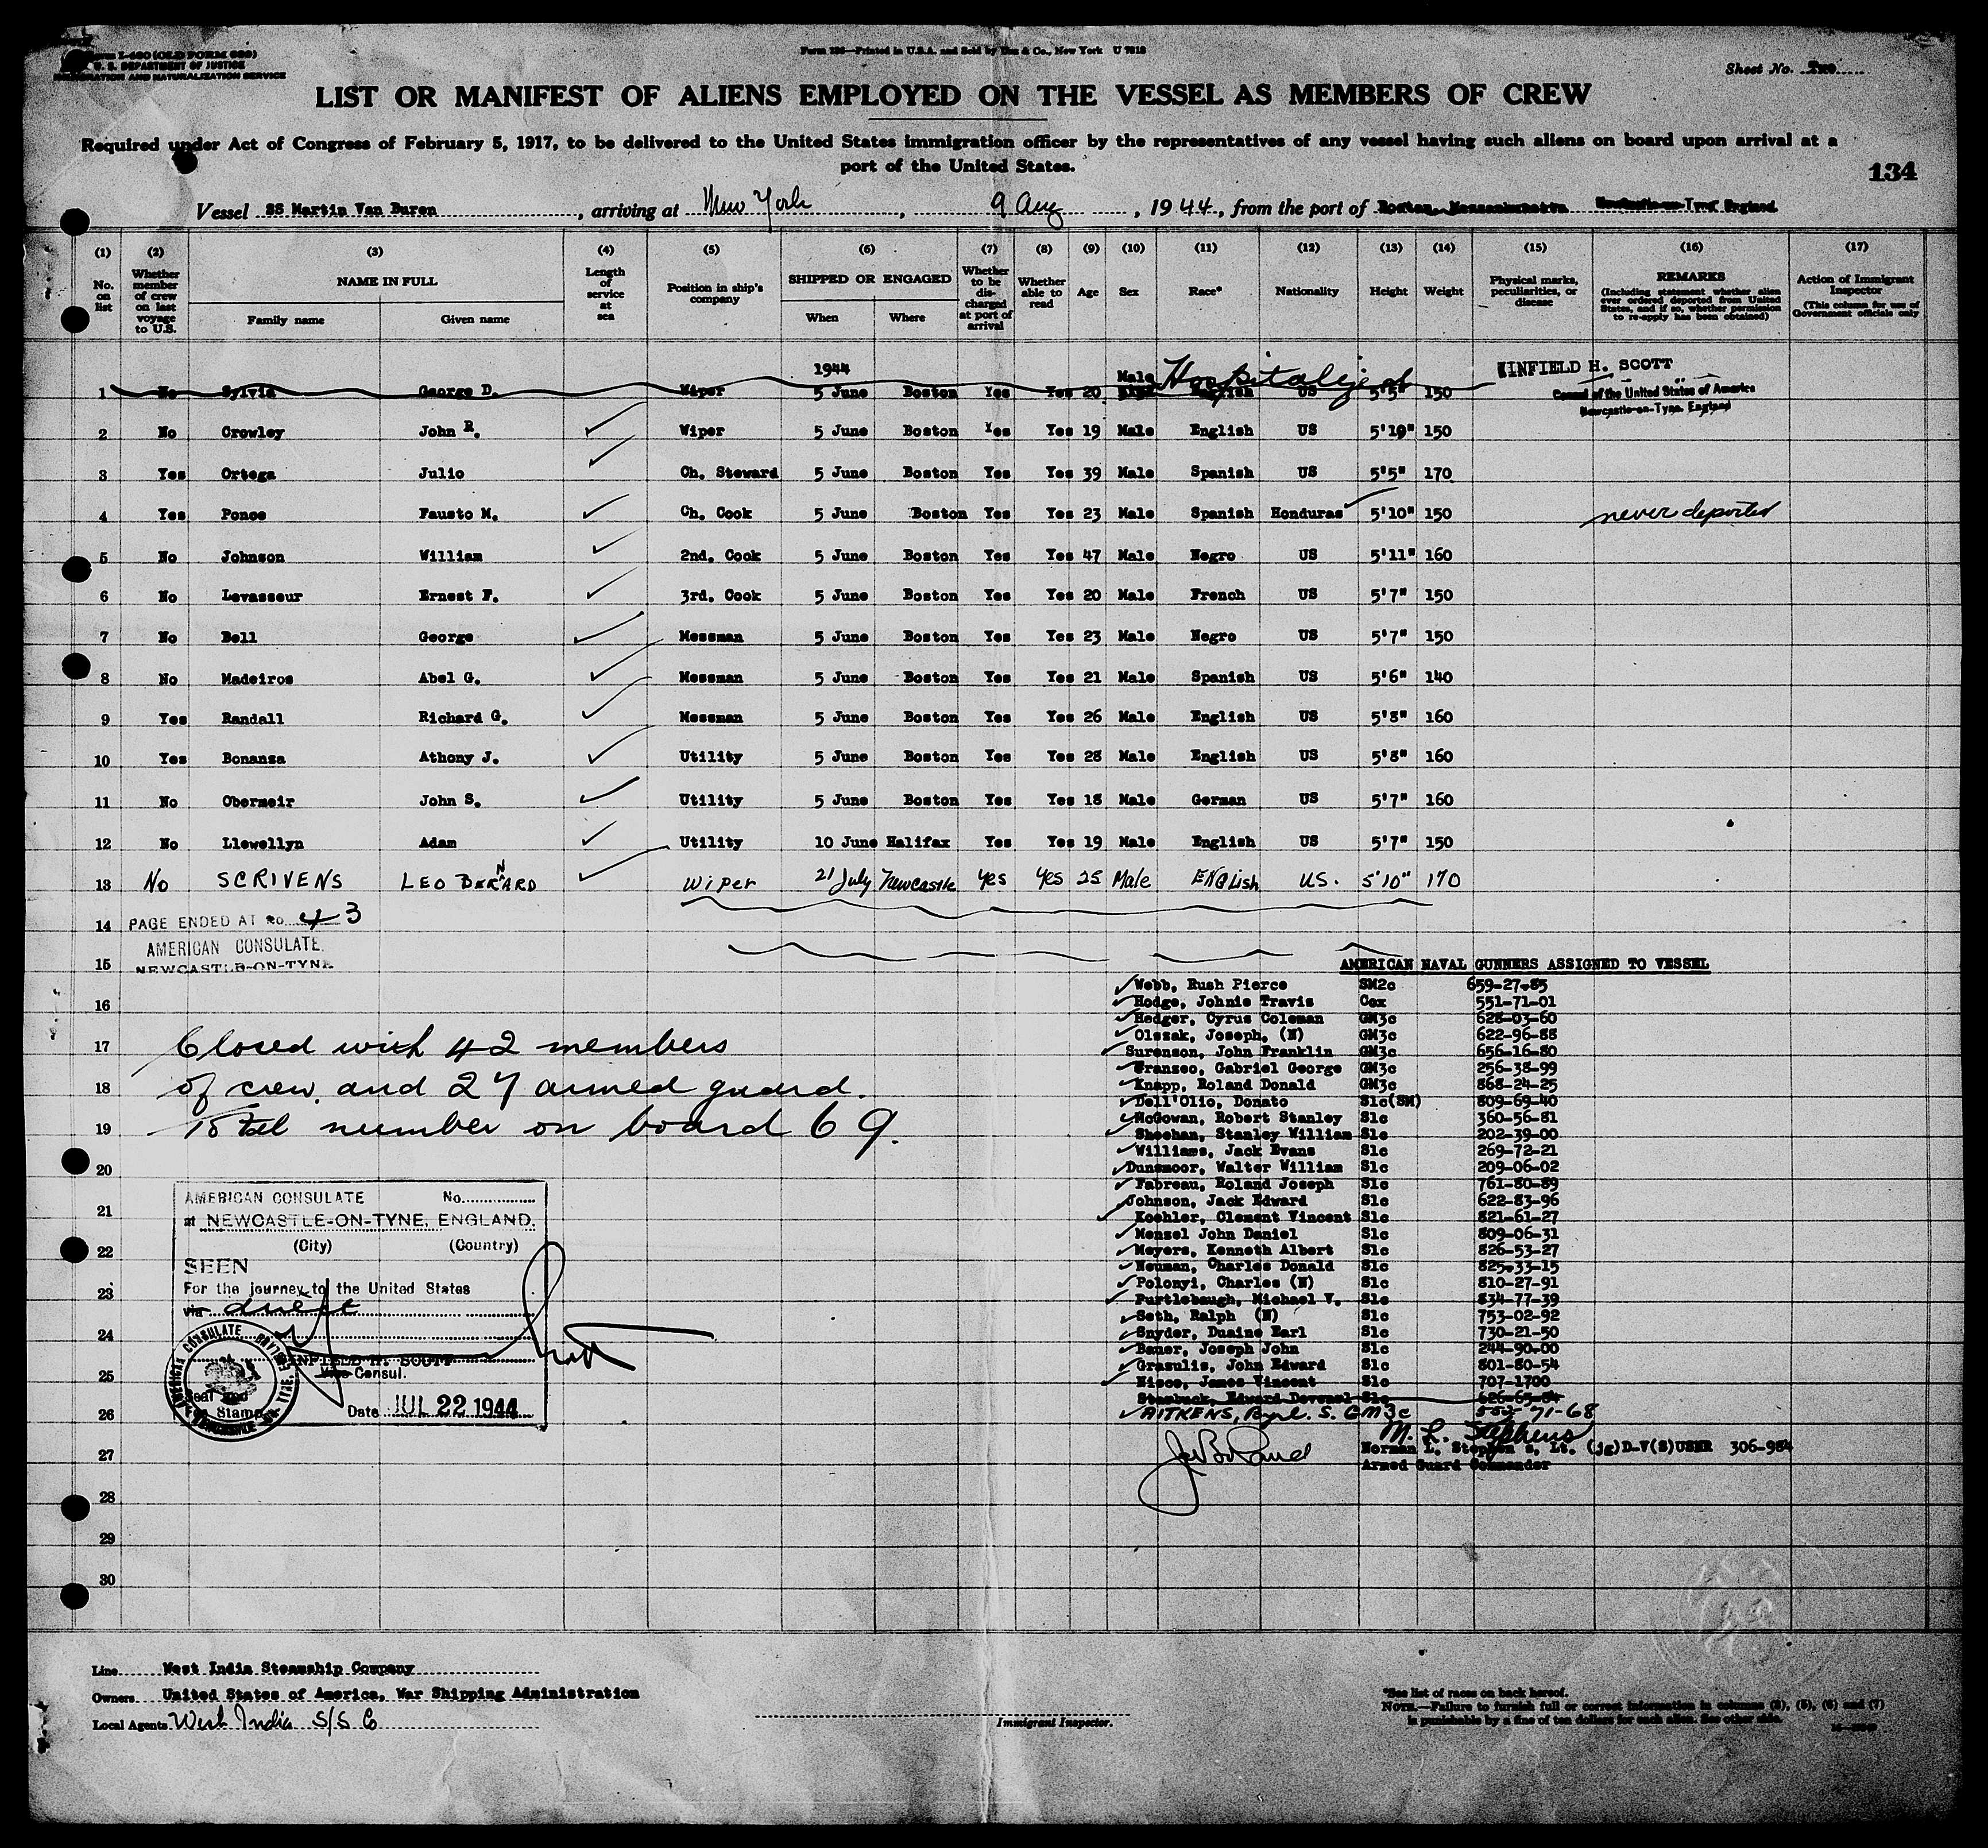 Form I-480 (OLD FORM 689)
U. S. DEPARTMENT OF JUSTICE
IMMIGRATION AND NATURALIZATION SERVICE
Form 186—Printed in U.S.A. and Sold by & Co., New York U 7618
Sheet No. Two
LIST OR MANIFEST OF ALIENS EMPLOYED ON THE VESSEL AS MEMBERS OF CREW
Required under Act of Congress of February 5, 1917, to be delivered to the United States immigration officer by the representatives of any vessel having such aliens on board upon arrival at a
port of the United States.
134
Vessel SS Martin Van Buren, arriving at New York, 9 Aug, 1944, from the port of Boston, Massachusetts Newcastle-on-Tyne England
(1) (2) (3) (4) (5) (6) (7) (8) (9) (10) (11) (12) (13) (14) (15) (16) (17)
No. on list
Whether member of crew on last voyage to U.S.
NAME IN FULL
Family name Given name
Length of service at sea
Position in ship's company
SHIPPED OR ENGAGED
When Where
Whether to be discharged at port of arrival
Whether able to read
Age
Sex
Race*
Nationality
Height
Weight
Physical marks, peculiarities, or disease
REMARKS
(Including statement whether alien ever ordered deported from United States, and if so, whether permission to re-apply has been obtained)
Action of Immigrant Inspector
(This column for use of Government officials only
1944
1 No Sylvia George D. Wiper 5 June Boston Yes Yes 20 Male English US 5'5" 150
Hospitalized
WINFIELD H. SCOTT
Consul of the United States of America
Newcastle-on-Tyne, England
2 No Crowley John R. Wiper 5 June Boston Yes Yes 19 Male English US 5'10" 150
3 Yes Ortega Julio Ch. Steward 5 June Boston Yes Yes 39 Male Spanish US 5'5" 170
4 Yes Ponce Fausto M. Ch. Cook 5 June Boston Yes Yes 23 Male Spanish Honduras 5'10" 150 never deported
5 No Johnson William 2nd. Cook 5 June Boston Yes Yes 47 Male Negro US 5'11" 160
6 No Levasseur Ernest F. 3rd. Cook 5 June Boston Yes Yes 20 Male French US 5'7" 150
7 No Bell George Messman 5 June Boston Yes Yes 23 Male Negro US 5'7" 150
8 No Madeiros Abel G. Messman 5 June Boston Yes Yes 21 Male Spanish US 5'6" 140
9 Yes Randall Richard G. Messman 5 June Boston Yes Yes 26 Male English US 5'8" 160
10 Yes Bonanza Athony J. Utility 5 June Boston Yes Yes 28 Male English US 5'8" 160
11 No Obermeir John S. Utility 5 June Boston Yes Yes 18 Male German US 5'7" 160
12 No Llewellyn Adam Utility 10 June Halifax Yes Yes 19 Male English US 5'7" 150
13 No SCRIVENS LEO BERNARD Wiper 21 July Newcastle Yes Yes 25 Male ENGLish U.S. 5'10" 170
14 PAGE ENDED AT No. 43
AMERICAN CONSULATE
15 NEWCASTLE-ON-TYNE
AMERICAN NAVAL GUNNERS ASSIGNED TO VESSEL
Webb, Rush Pierce SM2c 659-27-85
16 Hodge, Johnie Travis Cox 551-71-01
Hedger, Cyrus Coleman GM3c 628-03-60
Olszak, Joseph, (N) GM3c 622-96-88
17 Closed with 42 members
Surenson, John Franklin GM3c 656-16-80
Franzeo, Gabriel George GM3c 256-38-99
18 of crew, and 27 armed guard.
Knapp, Roland Donald GM3c 868-24-25
Dell'Olio, Donato S1c(SM) 809-69-40
McGowan, Robert Stanley S1c 360-56-81
19 Total number on board 69.
Sheehan, Stanley William S1c 202-39-00
Williams, Jack Evans S1c 269-72-21
20 Dunsmoor, Walter William S1c 209-06-02
Fabreau, Roland Joseph S1c 761-80-89
Johnson, Jack Edward S1c 622-83-96
21 Koehler, Clement Vincent S1c 821-61-27
Menzel John Daniel S1c 809-06-31
22 Meyers, Kenneth Albert S1c 826-53-27
Neuman, Charles Donald S1c 825-33-15
Polonyi, Charles (N) S1c 810-27-91
23 Purtlebaugh, Michael V. S1c 834-77-39
Seth, Ralph (N) S1c 753-02-92
24 Snyder, Duaine Earl S1c 730-21-50
Bauer, Joseph John S1c 244-90-00
Grasulis, John Edward S1c 801-80-54
25 Niece, James Vincent S1c 707-1700
Starbuck, Edward S1c 626-65-84
26 AITKENS, Byrl. S. GM3c 552-71-68
AMERICAN CONSULATE No.
at NEWCASTLE-ON-TYNE, ENGLAND.
(City) (Country)
SEEN
For the journey to the United States
via direct
WINFIELD H. SCOTT
Vice Consul.
Seal and
Fee Stamp
Date JUL 22 1944
AMERICAN CONSULATE NEWCASTLE-ON-TYNE, ENGLAND
27 Norman L. Stephens, Lt. (jg)D-V(S)USNR 306-984
Armed Guard Commander
28
29
30
Line West India Steamship Company
Owners United States of America, War Shipping Administration
Local Agents West India S/S Co
Immigrant Inspector.
*See list of races on back hereof.
NOTE.—Failure to furnish full or correct information in columns (3), (5), (6) and (7)
is punishable by a fine of ten dollars for each alien. See other side.